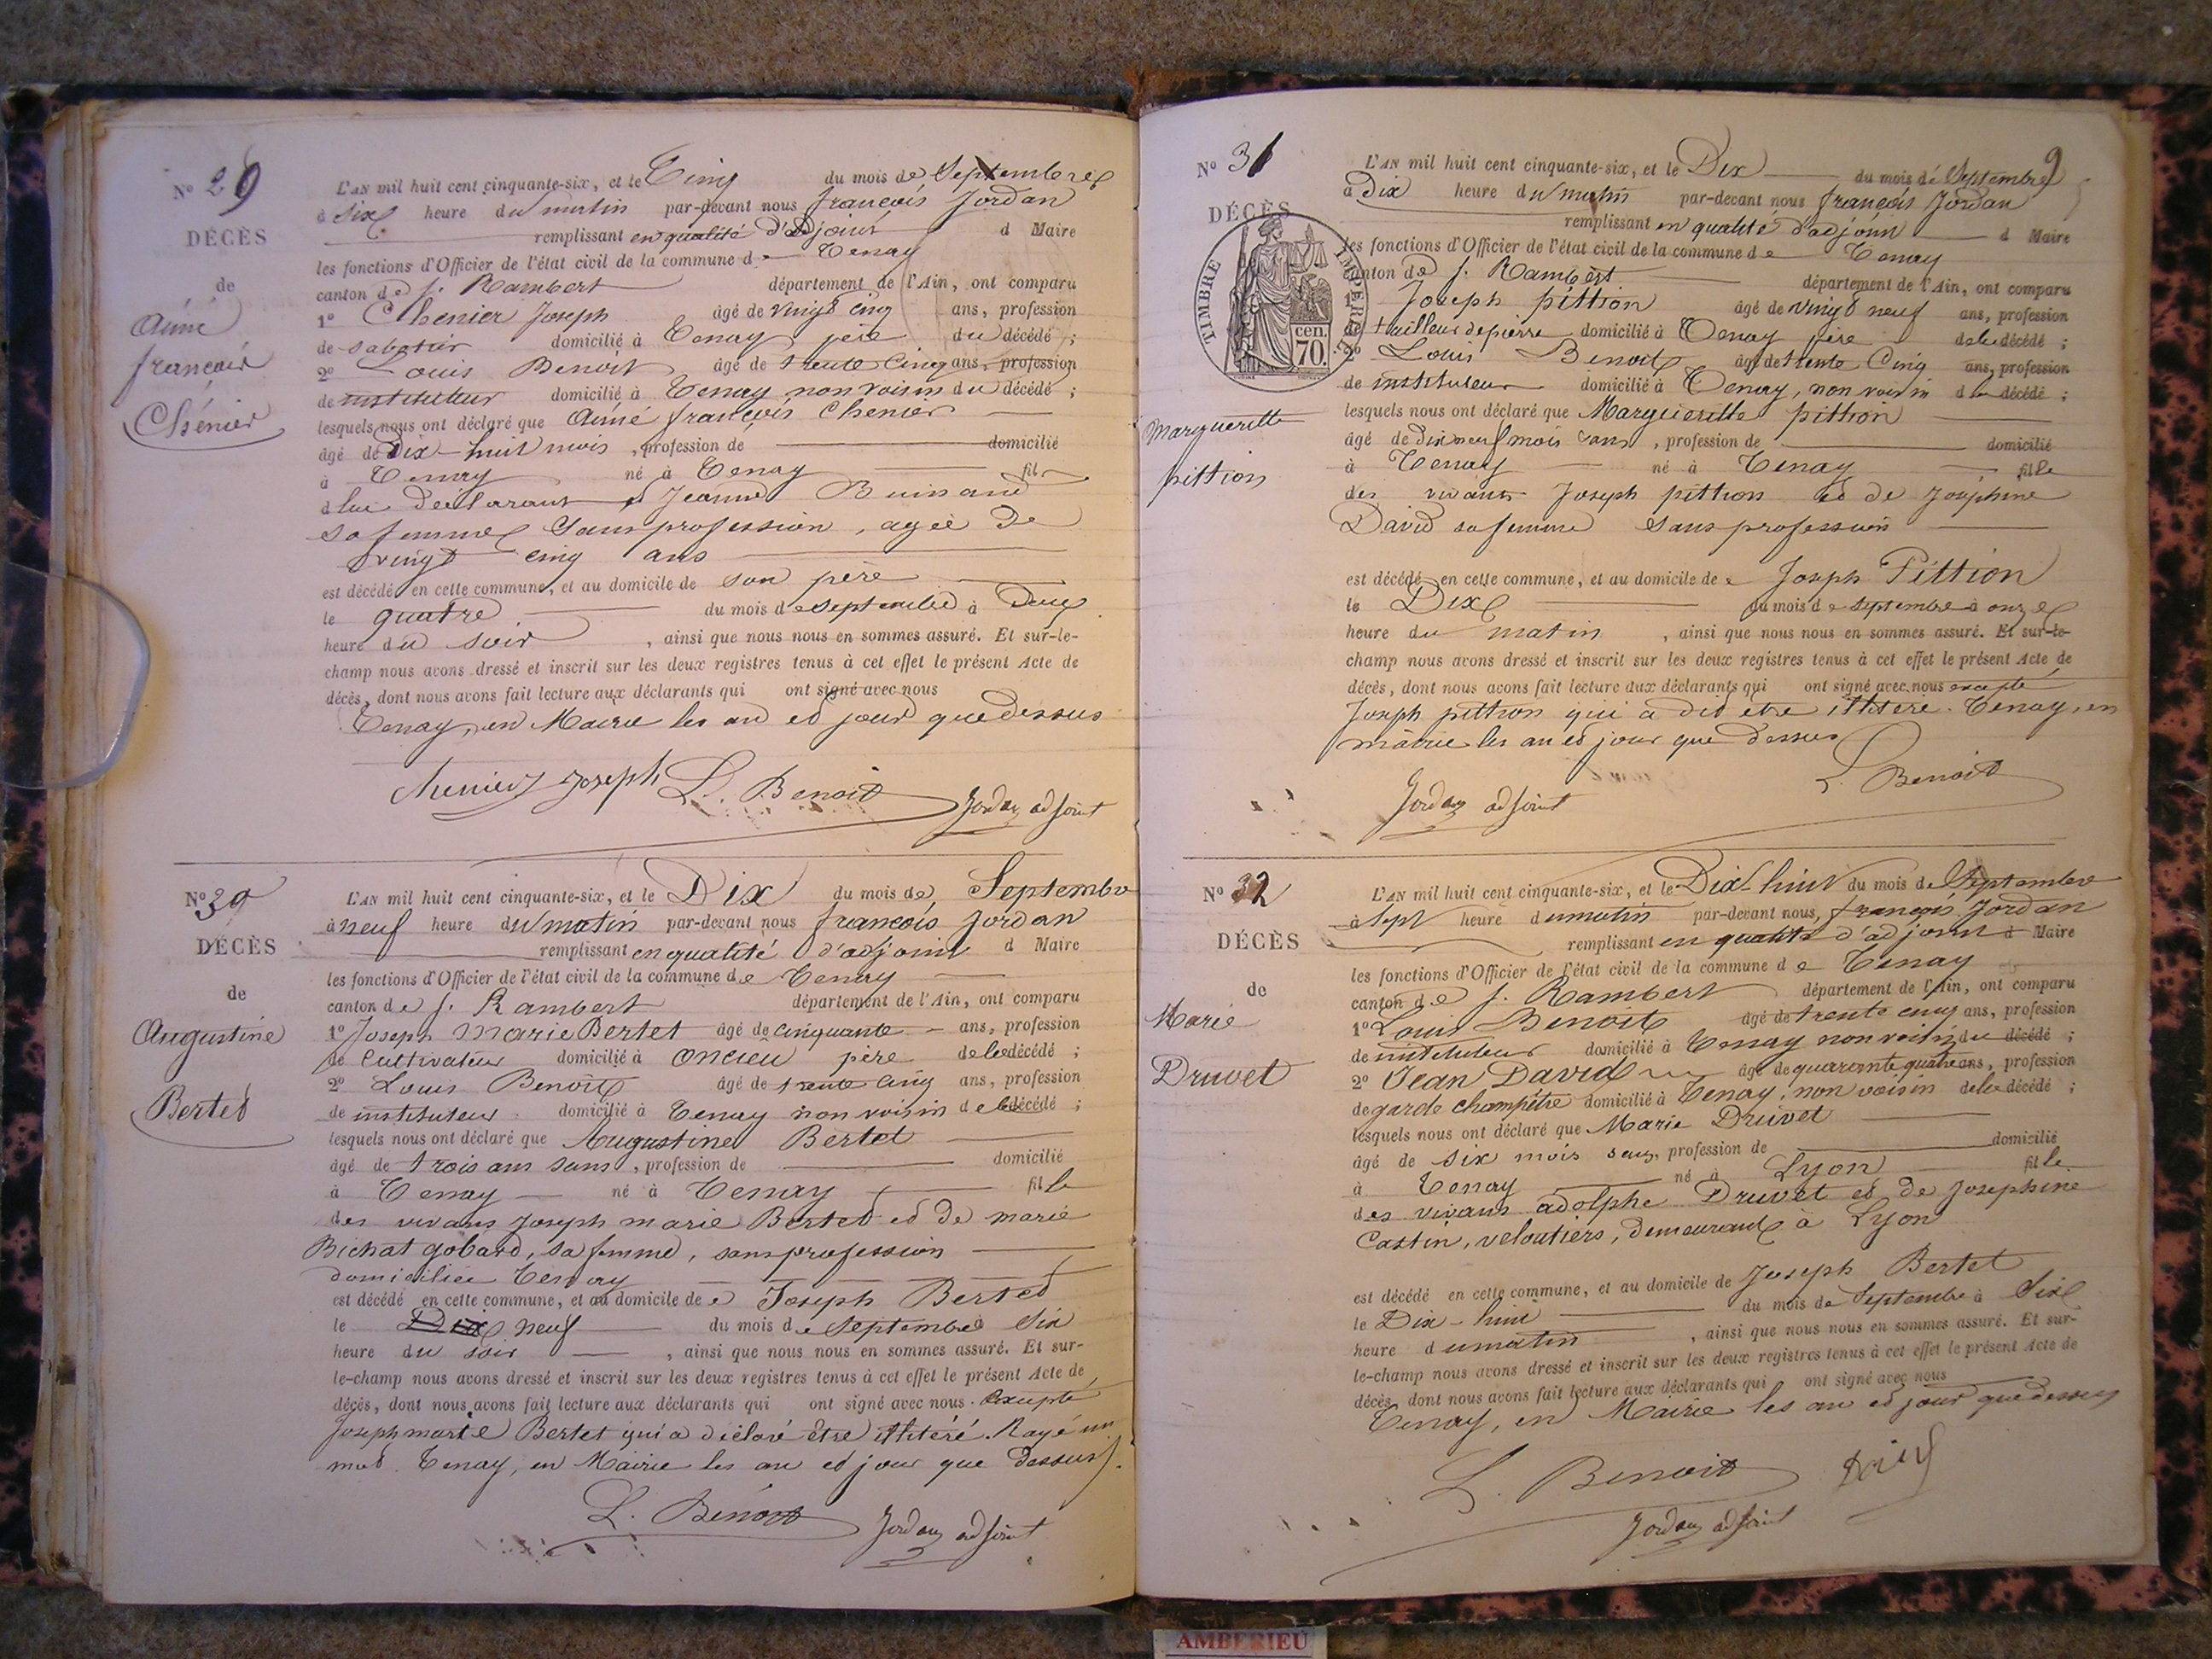 No 29
DÉCÈS
de
Aimé
françois
Chénier
L'AN mil huit cent cinquante-six, et le Cinq du mois de Septembre
à Six heure du matin par-devant nous françois Jordan
remplissant en qualité d'adjoint d Maire
les fonctions d'Officier de l'état civil de la commune de Tenay
canton de s. Rambert département de l'Ain, ont comparu
1o Chenier Joseph âgé de vingt cinq ans, profession
de sabotier domicilié à Tenay, père du décédé ;
2o Louis Benoit âgé de trente cinq ans, profession
de instituteur domicilié à Tenay non voisin du décédé ;
lesquels nous ont déclaré que Aimé françois Chenier
âgé de Dix-huit mois, profession de domicilié
à Tenay né à Tenay fils
de lui déclarant et Jeanne
sa femme sans profession, agée de
vingt cinq ans
est décédé en cette commune, et au domicile de son père
le quatre du mois de septembre à Deux
heure du soir, ainsi que nous nous en sommes assuré. Et sur-le-
champ nous avons dressé et inscrit sur les deux registres tenus à cet effet le présent Acte de
décès, dont nous avons fait lecture aux déclarants qui ont signé avec nous
Tenay, en Mairie les an et jour que dessus
Chenier Joseph L. Benoit Jordan adjoint
No 30
DÉCÈS
de
Augustine
Bertet
L'AN mil huit cent cinquante-six, et le Dix du mois de Septembre
à neuf heure du matin par-devant nous françois Jordan
remplissant en qualité d'adjoint d Maire
les fonctions d'Officier de l'état civil de la commune de Tenay
canton de s. Rambert département de l'Ain, ont comparu
1o Joseph marie Bertet âgé de cinquante ans, profession
de Cultivateur domicilié à oncieu père de la décédé ;
2o Louis Benoit âgé de trente cinq ans, profession
de instituteur domicilié à Tenay non voisin de la décédé ;
lesquels nous ont déclaré que Augustine Bertet
âgé de trois ans sans, profession de domicilié
à Tenay né à Tenay fille
des vivans Joseph marie Bertet et de marie
Bichat gobard, sa femme, sans profession
domiciliée Tenay
est décédé en cette commune, et au domicile de Joseph Bertet
le Dix neuf du mois de Septembre à Six
heure du soir, ainsi que nous nous en sommes assuré. Et sur-
le-champ nous avons dressé et inscrit sur les deux registres tenus à cet effet le présent Acte de
décès, dont nous avons fait lecture aux déclarants qui ont signé avec nous. Excepté
Joseph marie Bertet qui a déclaré être illitéré. Rayé un
mot. Tenay, en Mairie les an et jour que dessus.
L. Benoit Jordan adjoint
9
No 31
DÉCÈS
TIMBRE IMPÉRIAL
70 cen.
Margueritte
pittion
L'AN mil huit cent cinquante-six, et le Dix du mois de Septembre
à Dix heure du matin par-devant nous françois Jordan
remplissant en qualité d'adjoint d Maire
les fonctions d'Officier de l'état civil de la commune de Tenay
canton de s. Rambert département de l'Ain, ont comparu
1o Joseph pittion âgé de vingt neuf ans, profession
de tailleur de pierre domicilié à Tenay père de la décédé ;
2o Louis Benoit âgé de trente Cinq ans, profession
de instituteur domicilié à Tenay, non voisin de la décédé ;
lesquels nous ont déclaré que Marguieritte pittion
âgé de dix neuf mois sans, profession de domicilié
à Tenay né à Tenay fille
des vivans Joseph pittion et de Joséphine
David sa femme sans profession
est décédé en cette commune, et au domicile de Joseph Pittion
le Dix du mois de septembre à onze
heure du matin, ainsi que nous nous en sommes assuré. Et sur-le-
champ nous avons dressé et inscrit sur les deux registres tenus à cet effet le présent Acte de
décès, dont nous avons fait lecture aux déclarants qui ont signé avec nous excepté
Joseph pittion qui a dit etre illitéré. Tenay, en
mairie les an et jour que dessus
L. Benoit
Jordan adjoint
No 32
DÉCÈS
de
Marie
Druvet
L'AN mil huit cent cinquante-six, et le Dix-huit du mois de Septembre
à Sept heure du matin par-devant nous, françois Jordan
remplissant en qualité d'adjoint d Maire
les fonctions d'Officier de l'état civil de la commune de Tenay
canton de s. Rambert département de l'Ain, ont comparu
1o Louis Benoit âgé de trente cinq ans, profession
de instituteur domicilié à Tenay non voisin du décédé ;
2o Jean David âgé de quarante quatre ans, profession
de garde champêtre domicilié à Tenay, non voisin de la décédé ;
lesquels nous ont déclaré que Marie Druvet
âgé de six mois sans, profession de domicilié
à Tenay né à Lyon fille
des vivans adolphe Druvet et de Josephine
Castin, veloutiers, Demeurant à Lyon
est décédé en cette commune, et au domicile de Joseph Bertet
le Dix-huit du mois de Septembre à Six
heure du matin, ainsi que nous nous en sommes assuré. Et sur-
le-champ nous avons dressé et inscrit sur les deux registres tenus à cet effet le présent Acte de
décès, dont nous avons fait lecture aux déclarants qui ont signé avec nous
Tenay, en Mairie les an et jour que dessus
L. Benoit David
Jordan adjoint
AMBERIEU